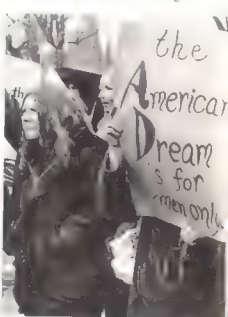 the
America
Dream
s for
men only.